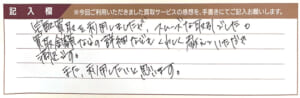 記入欄 ※今回ご利用いただきました買取サービスの感想を、手書きにてご記入お願いします。
宅配買取を利用しましたが、スムーズな取引でした。
買取金額などの詳細などもくわしく教えていただき
満足です。
また、利用したいと思います。